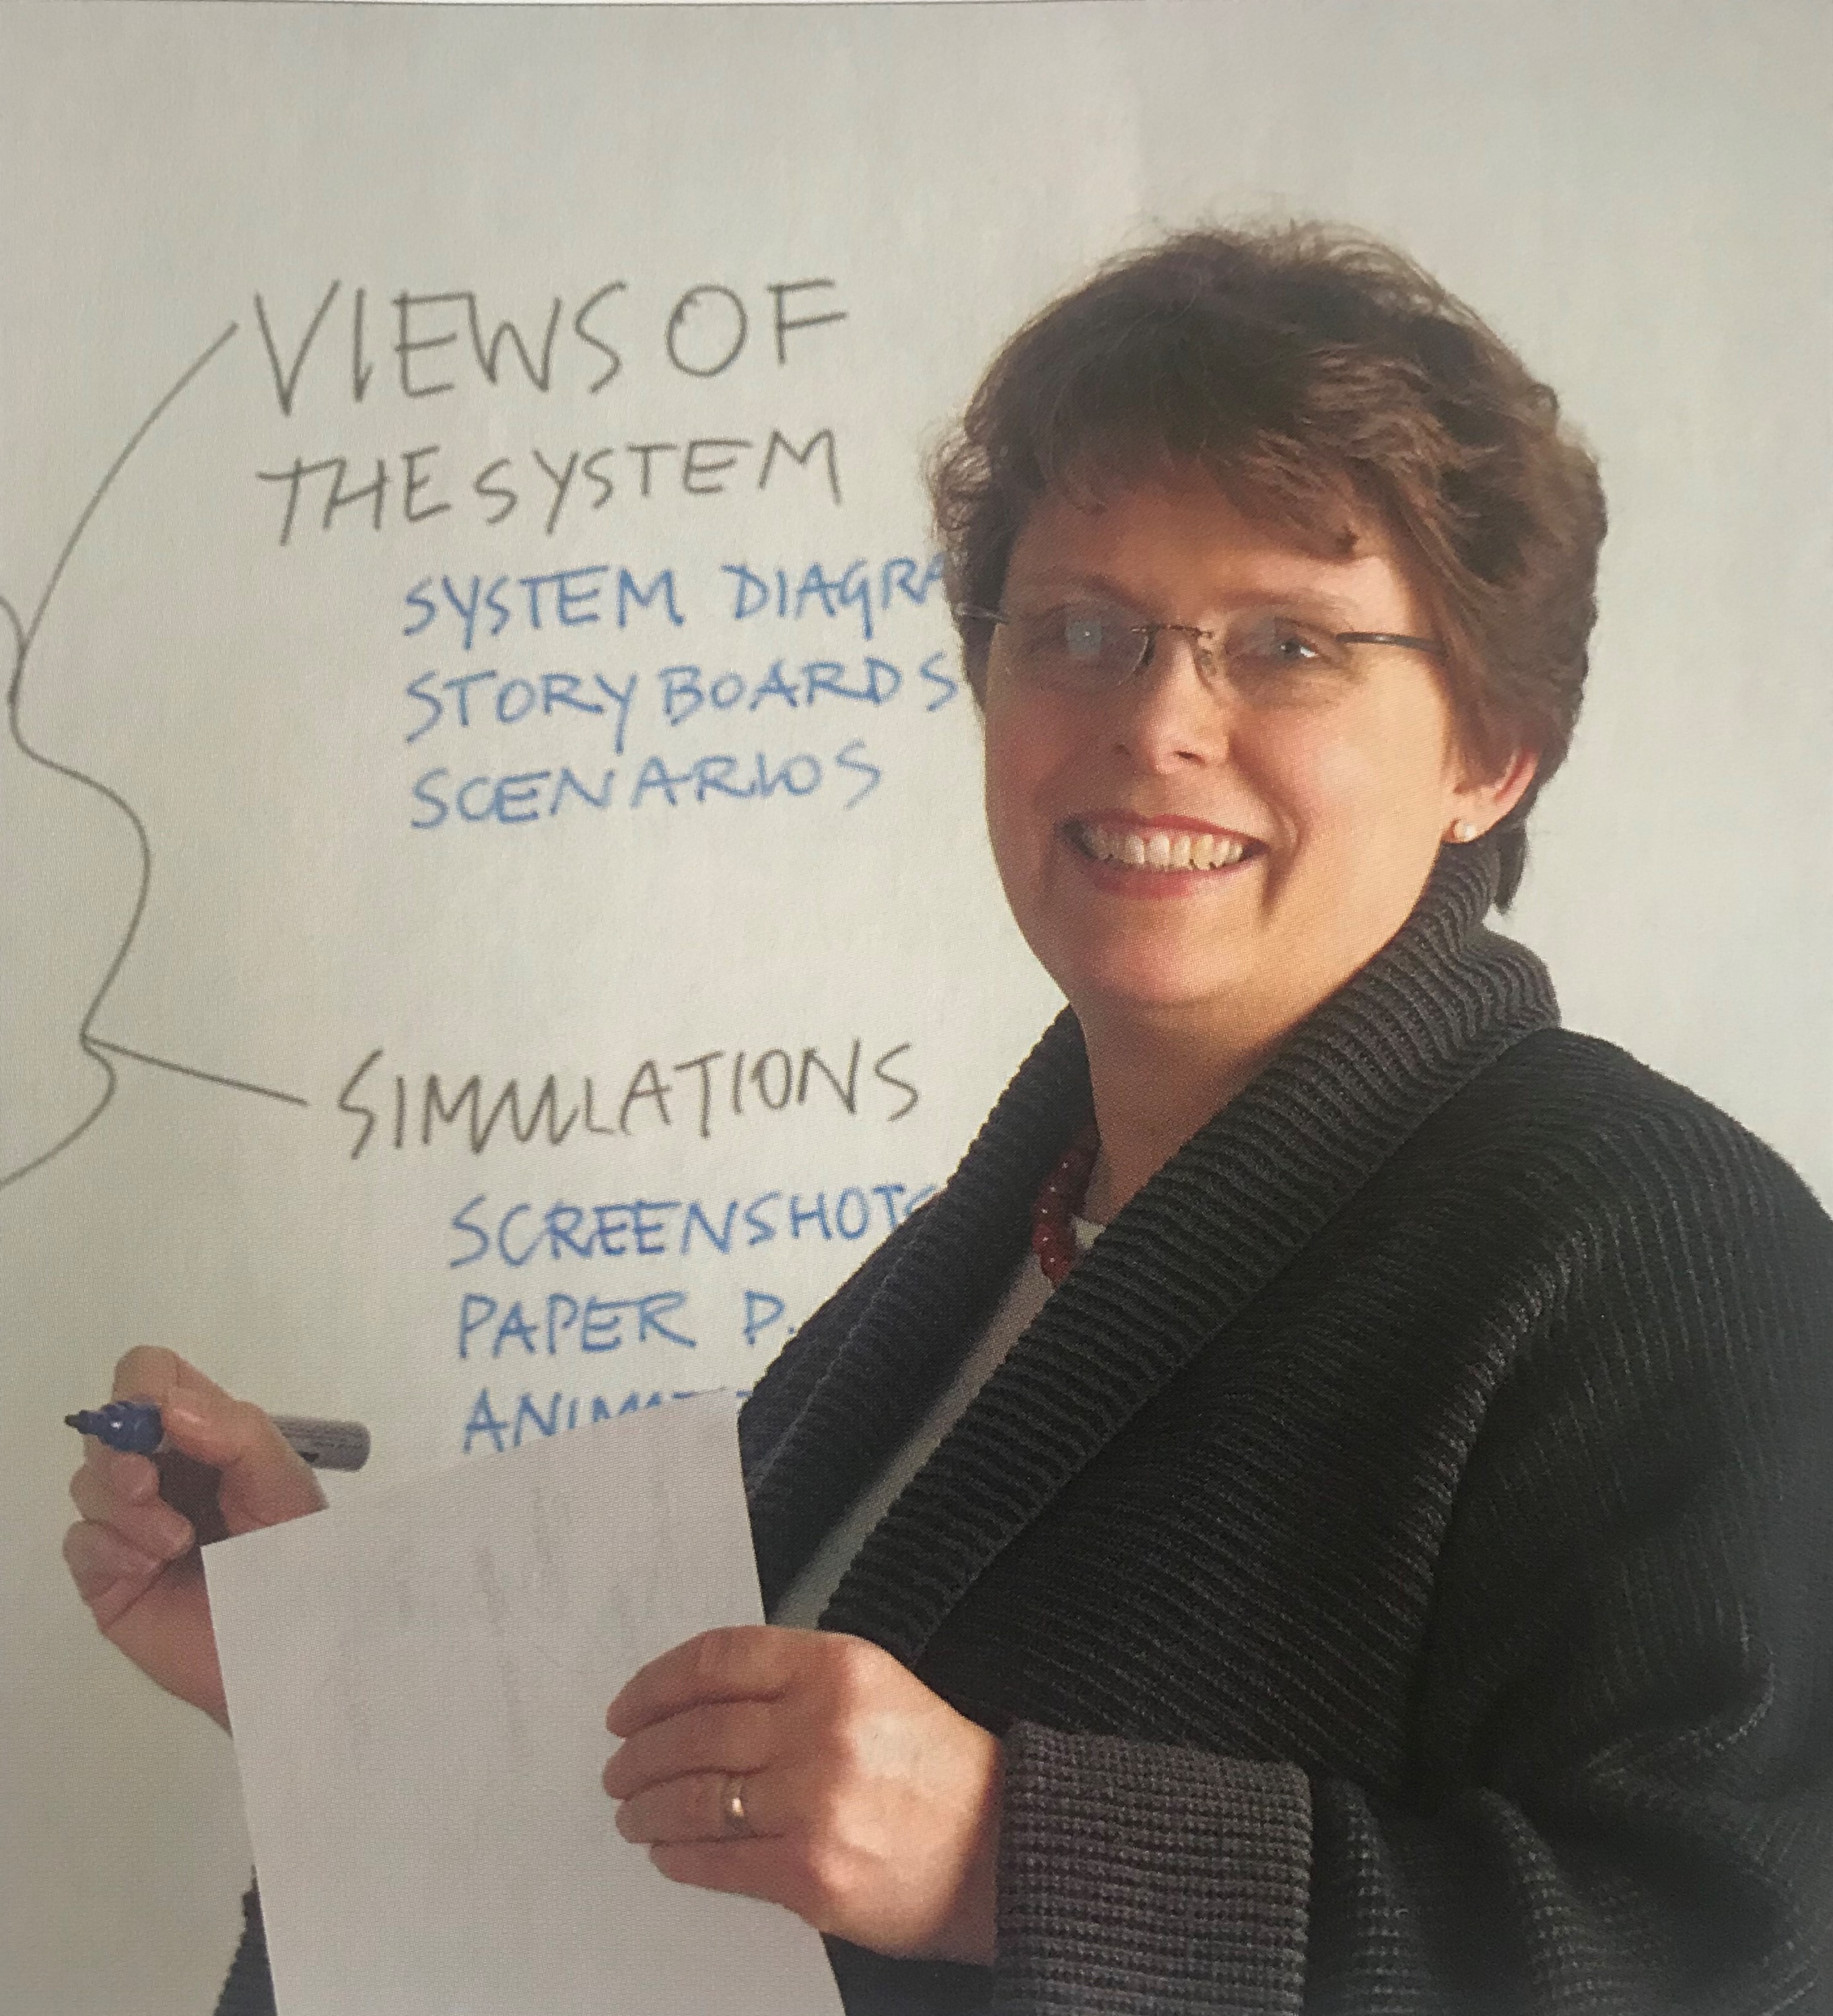 VIEWS OF
THE SYSTEM
SYSTEM DIAGRA
STORYBOARDS
SCENARIOS
SIMULATIONS
SCREENSHOTS
PAPER P.